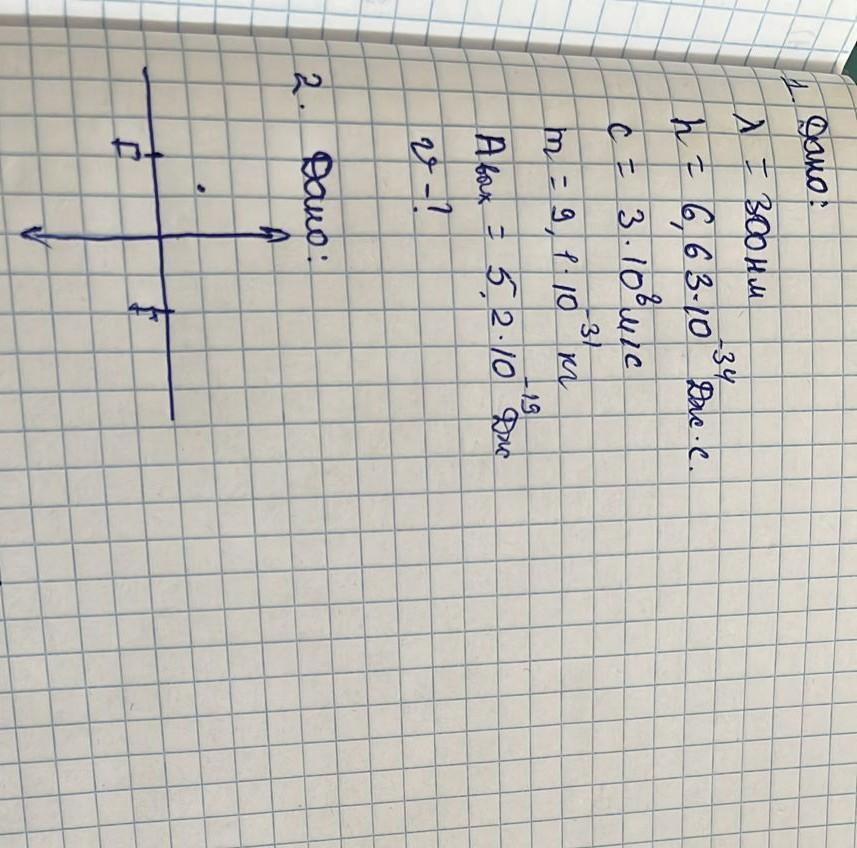 1. Дано:
λ = 300 нм
h = 6,63·10⁻³⁴ Дж·с.
c = 3·10⁸ м/с
m = 9,1·10⁻³¹ кг
Aвых = 5,2·10⁻¹⁹ Дж
v - ?
2. Дано:
F F